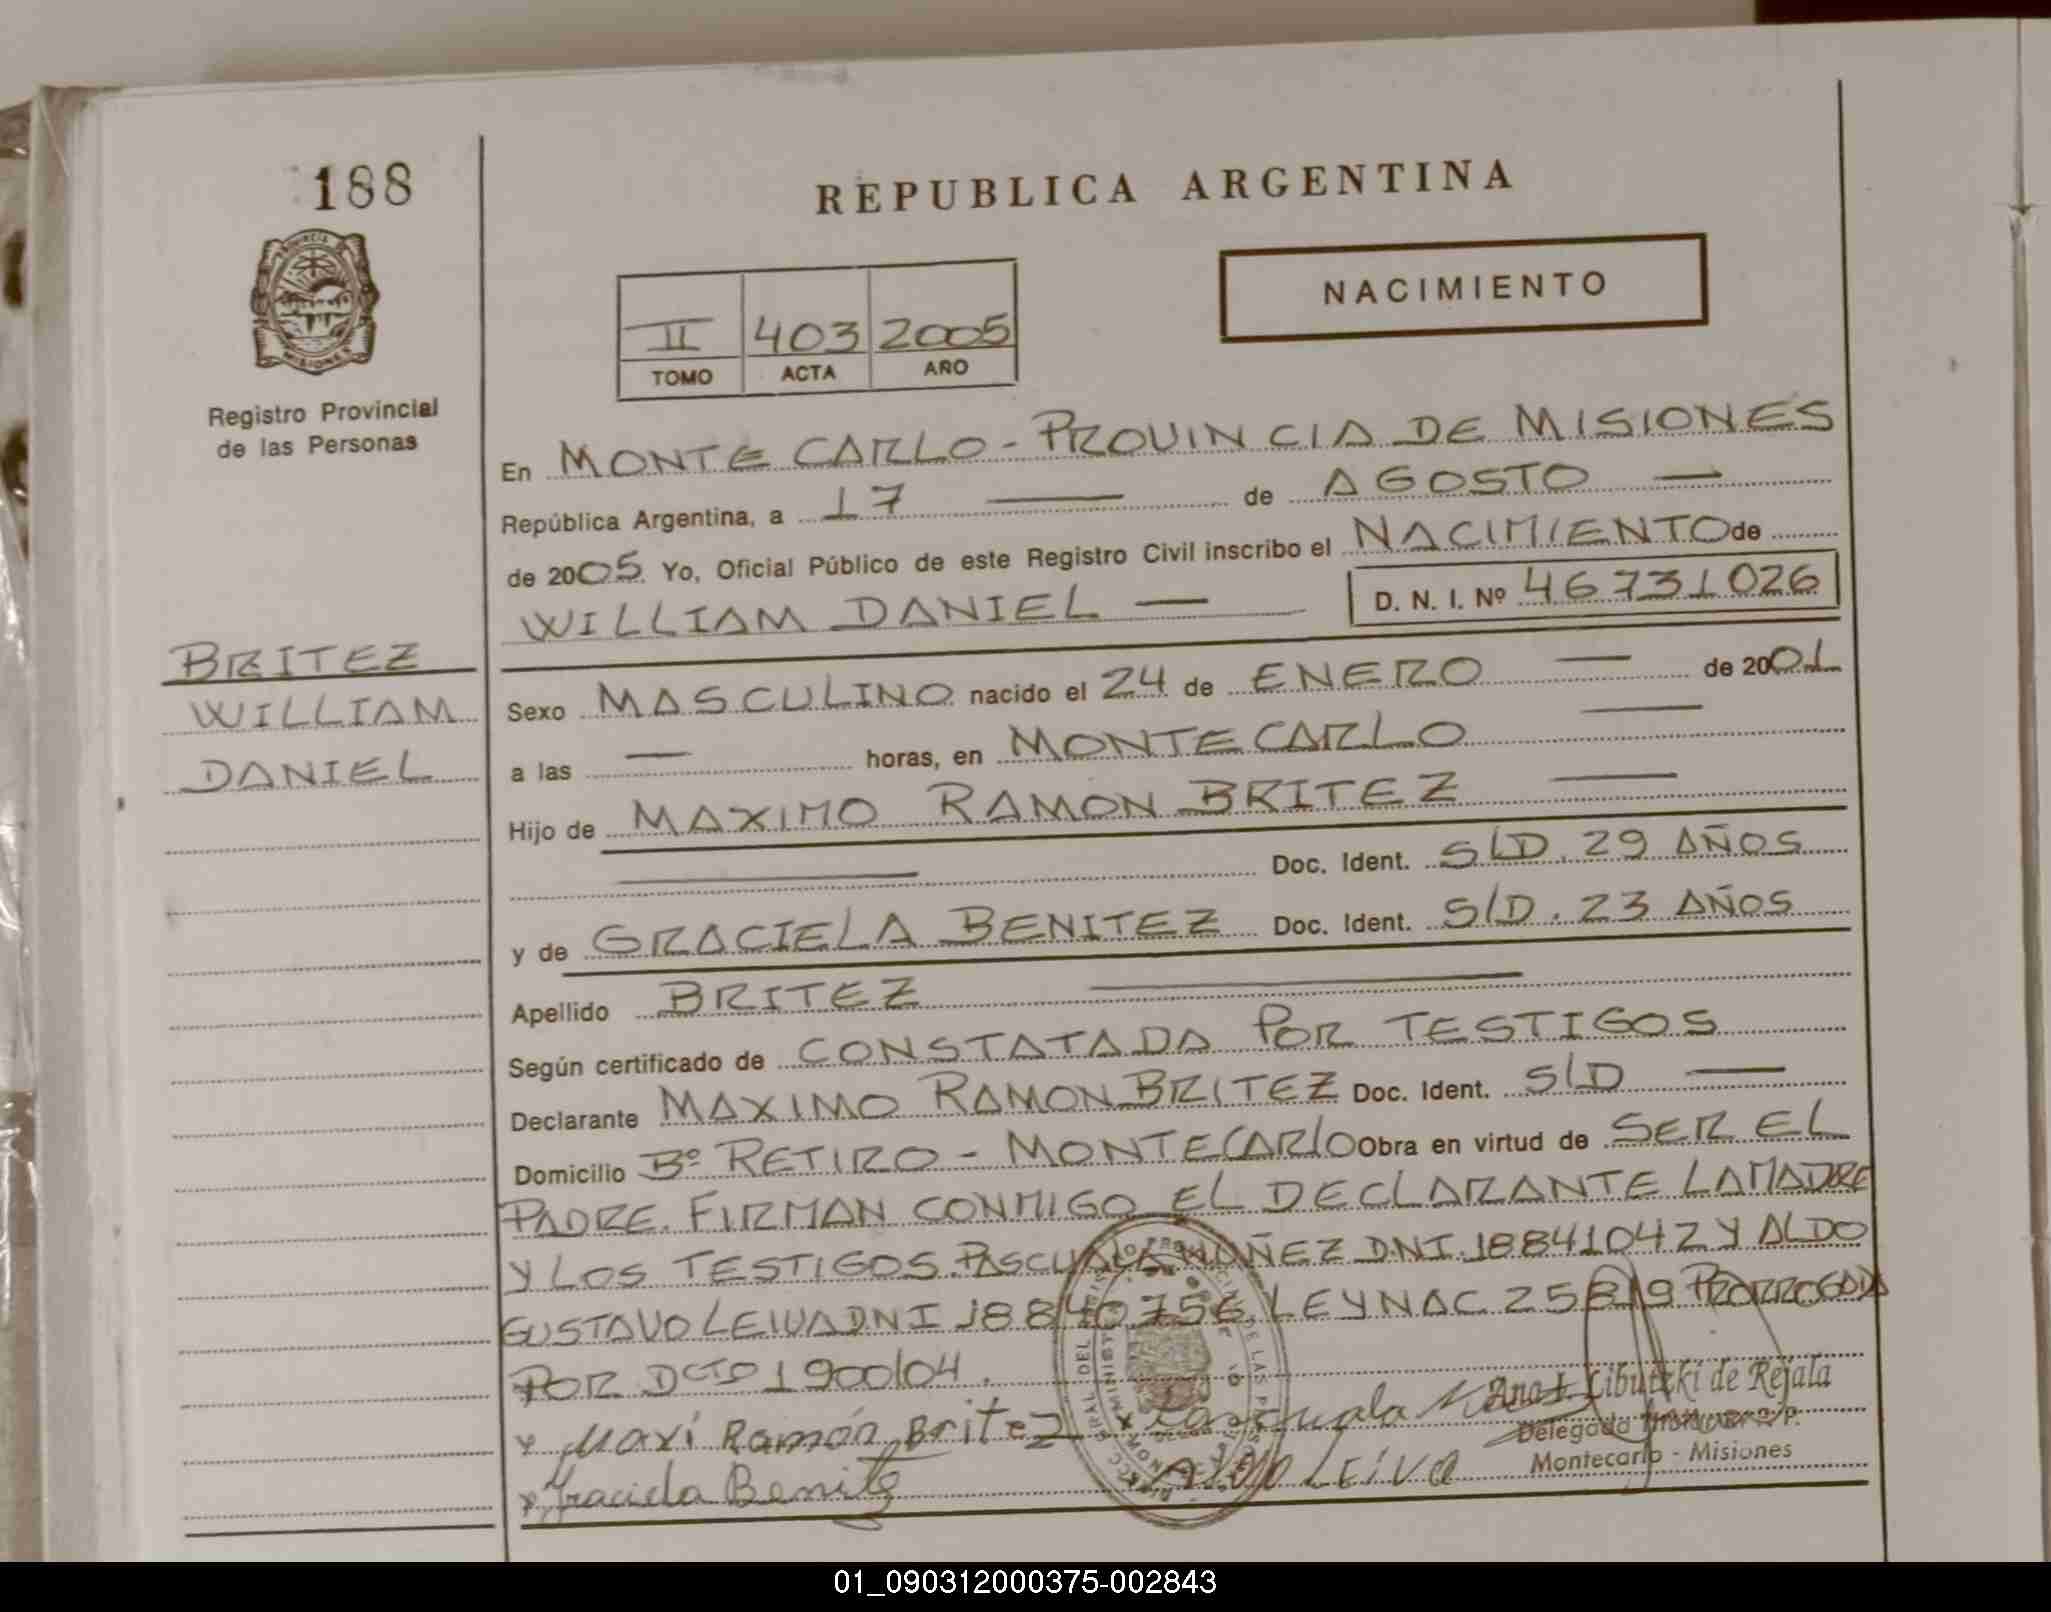 188
REPUBLICA ARGENTINA
NACIMIENTO
II 403 2005
TOMO ACTA AÑO
Registro Provincial
de las Personas
BRITEZ
WILLIAM
DANIEL
En MONTE CARLO - PROVINCIA DE MISIONES
República Argentina, a 17 — de AGOSTO —
de 2005. Yo, Oficial Público de este Registro Civil inscribo el NACIMIENTO de
WILLIAM DANIEL — D. N. I. Nº 46731026
Sexo MASCULINO nacido el 24 de ENERO — de 2001
a las — horas, en MONTECARLO —
Hijo de MAXIMO RAMON BRITEZ —
— Doc. Ident. S/D. 29 AÑOS
y de GRACIELA BENITEZ Doc. Ident. S/D. 23 AÑOS
Apellido BRITEZ —
Según certificado de CONSTATADA POR TESTIGOS
Declarante MAXIMO RAMON BRITEZ Doc. Ident. S/D —
Domicilio Bº RETIRO - MONTECARLO Obra en virtud de SER EL
PADRE. FIRMAN CONMIGO EL DECLARANTE LA MADRE
Y LOS TESTIGOS. PASCUALA NUÑEZ DNI. 18841042 Y ALDO
GUSTAVO LEIVA DNI 18840756 LEY NAC 25819 PRORROGADA
POR DCTO 1900/04.
x Maxi Ramón Britez x Pascuala
Ana I. Libutzki de Rejala
Delegada
Montecarlo - Misiones
x Graciela Benitez Aldo Leiva
01_090312000375-002843